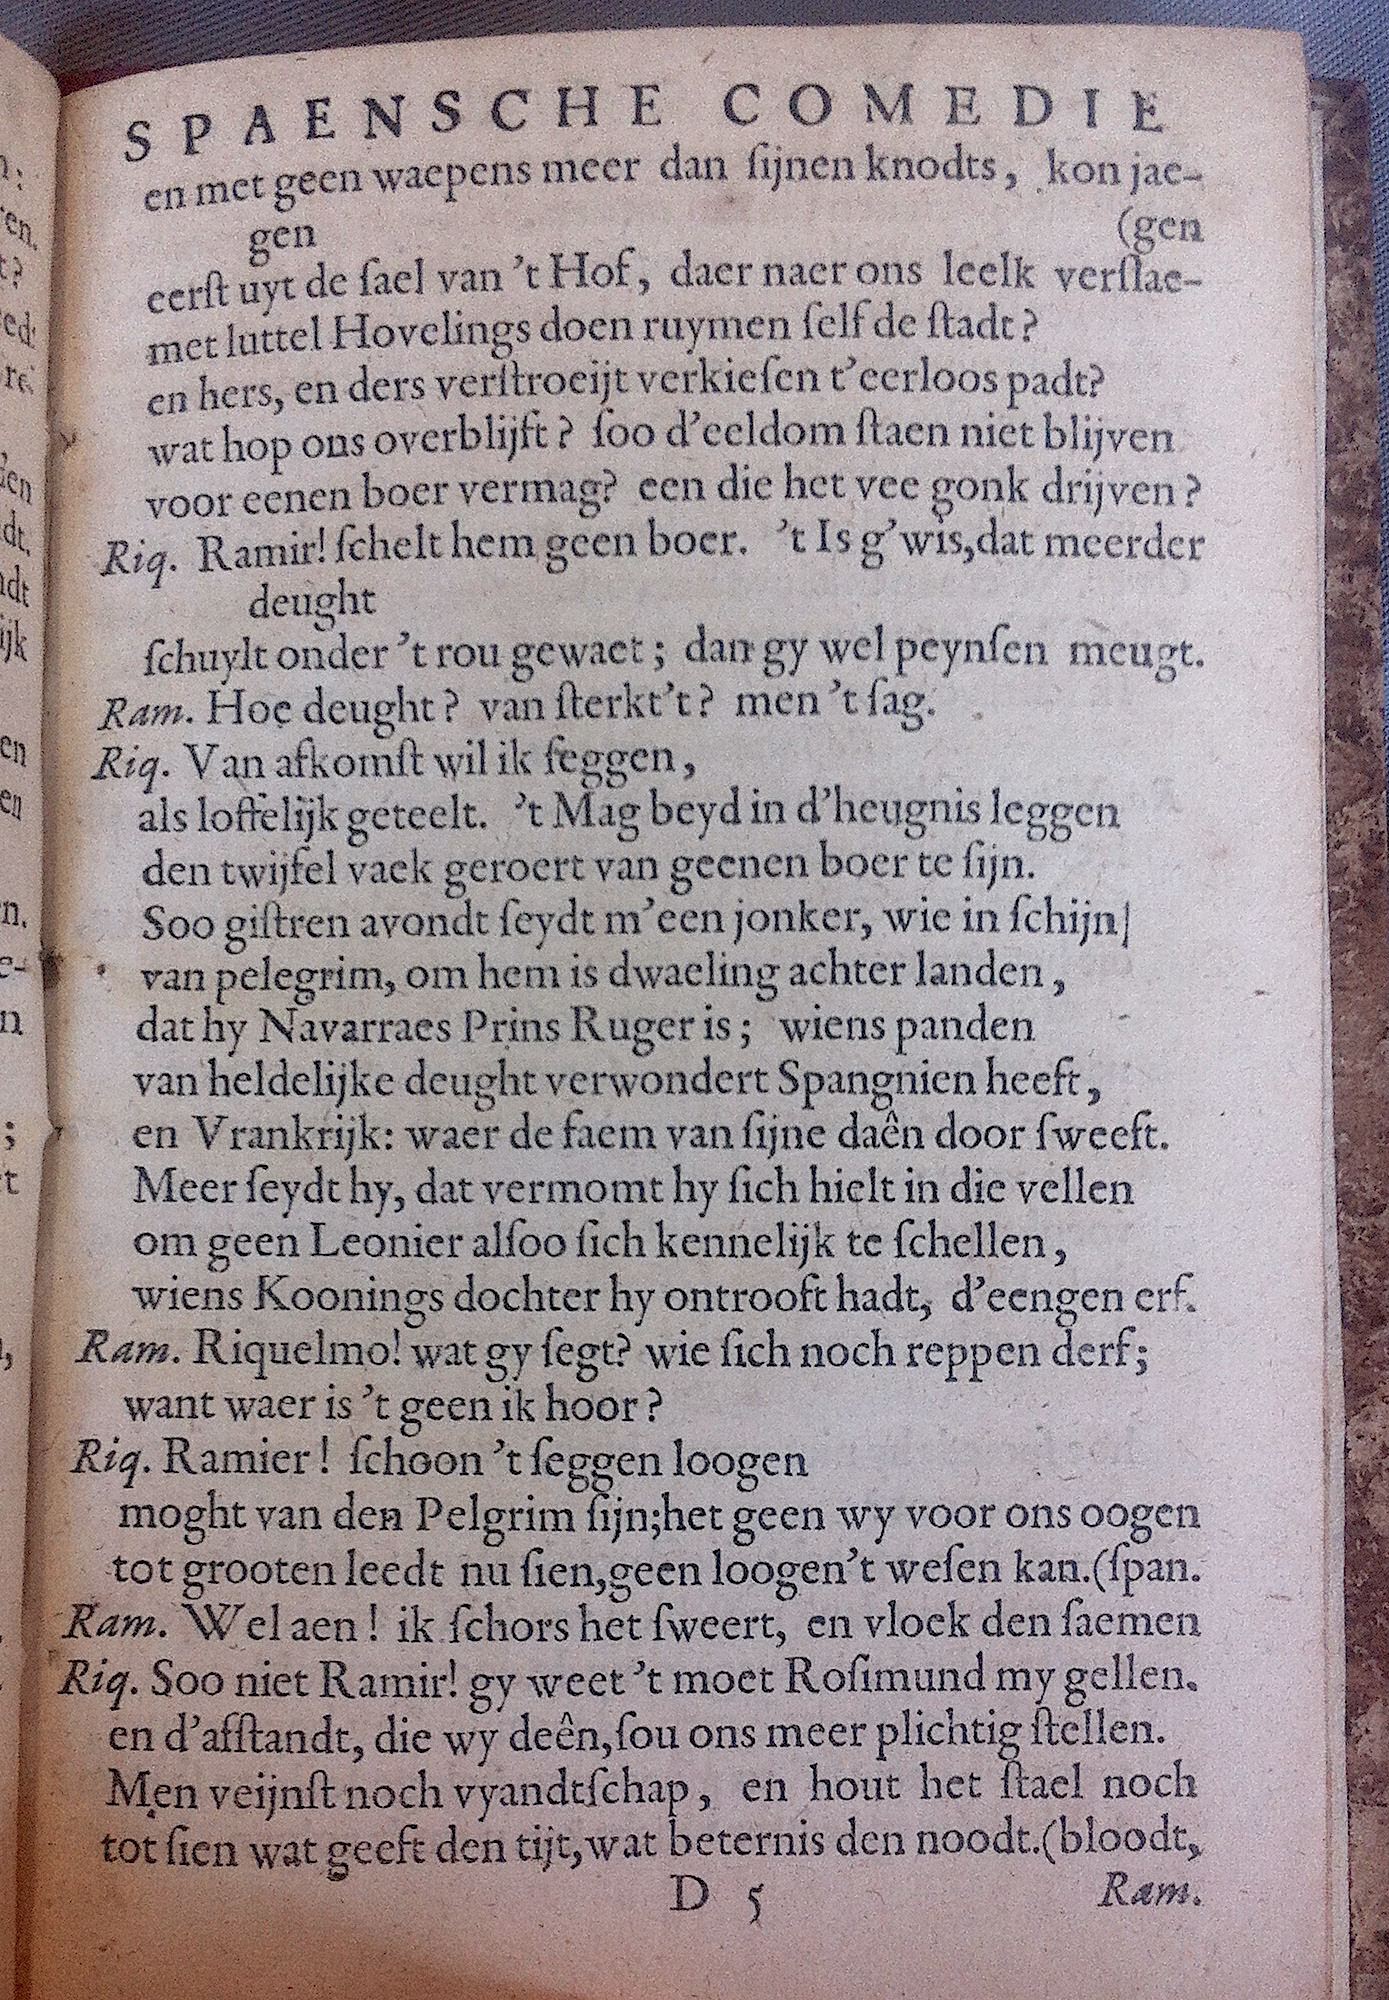 SPAENSCHE COMEDIE
en met geen waepens meer dan ſijnen knodts, kon jae-
gen (gen
eerſt uyt de ſael van 't Hof, daer naer ons leelk verſlae-
met luttel Hovelings doen ruymen ſelf de ſtadt?
en hers, en ders verſtroeijt verkieſen t'eerloos padt?
wat hop ons overblijft? ſoo d'eeldom ſtaen niet blijven
voor eenen boer vermag? een die het vee gonk drijven?
Riq. Ramir! ſchelt hem geen boer. 't Is g'wis,dat meerder
deught
ſchuylt onder 't rou gewaet; dan gy wel peynſen meugt.
Ram. Hoe deught? van ſterkt't? men 't ſag.
Riq. Van afkomſt wil ik ſeggen,
als loffelijk geteelt. 't Mag beyd in d'heugnis leggen
den twijfel vaek geroert van geenen boer te ſijn.
Soo giſtren avondt ſeydt m'een jonker, wie in ſchijn
van pelegrim, om hem is dwaeling achter landen,
dat hy Navarraes Prins Ruger is; wiens panden
van heldelijke deught verwondert Spangnien heeft,
en Vrankrijk: waer de faem van ſijne daên door ſweeft.
Meer ſeydt hy, dat vermomt hy ſich hielt in die vellen
om geen Leonier alſoo ſich kennelijk te ſchellen,
wiens Koonings dochter hy ontrooft hadt, d'eengen erf.
Ram. Riquelmo! wat gy ſegt? wie ſich noch reppen derf;
want waer is 't geen ik hoor?
Riq. Ramier! ſchoon 't ſeggen loogen
moght van den Pelgrim ſijn;het geen wy voor ons oogen
tot grooten leedt nu ſien,geen loogen't weſen kan.(ſpan.
Ram. Wel aen! ik ſchors het ſweert, en vloek den ſaemen
Riq. Soo niet Ramir! gy weet 't moet Roſimund my gellen.
en d'afſtandt, die wy deên,ſou ons meer plichtig ſtellen.
Men veijnſt noch vyandtſchap, en hout het ſtael noch
tot ſien wat geeft den tijt,wat beternis den noodt.(bloodt,
D 5 Ram.